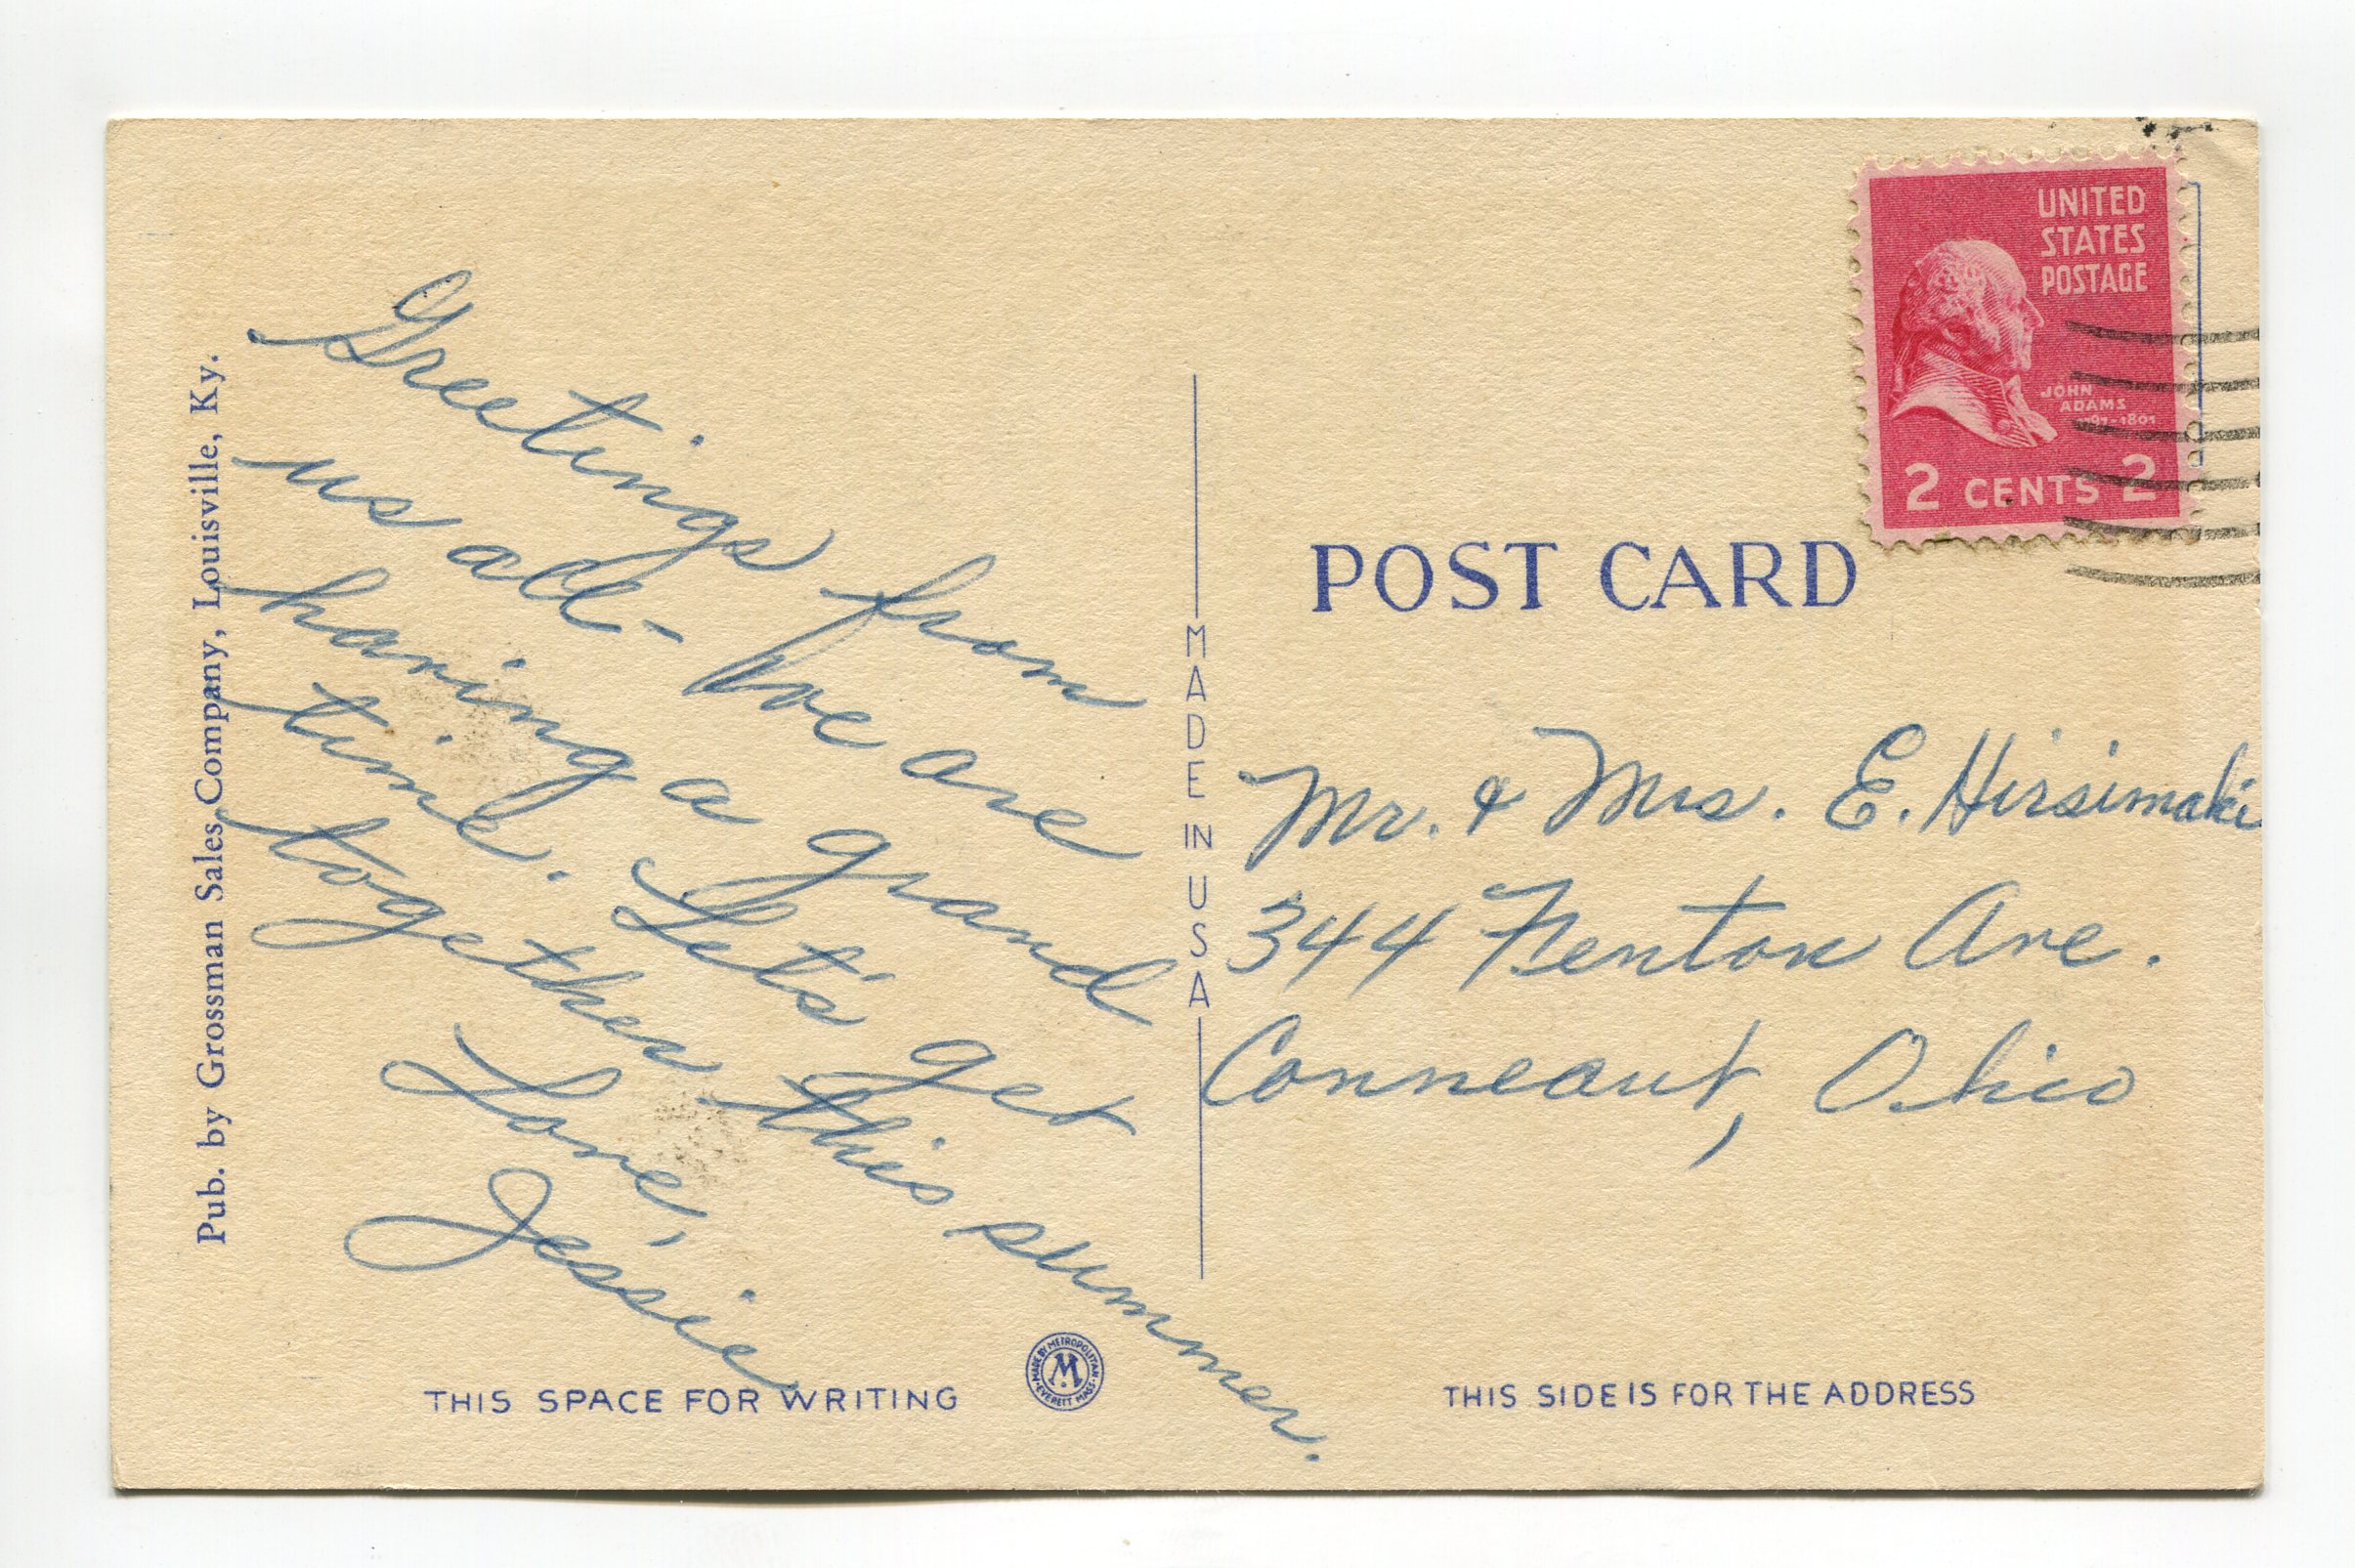 Pub. by Grossman Sales Company, Louisville, Ky.
Greetings from
us all - We are
having a grand
time. Let's get
together this summer.
Love,
Jessie
THIS SPACE FOR WRITING
MADE BY METROPOLITAN
M
EVERETT MASS.
MADE IN USA
UNITED
STATES
POSTAGE
JOHN
ADAMS
1797-1801
2 CENTS 2
POST CARD
Mr. & Mrs. E. Hirsimaki
344 Fenton Ave.
Conneaut, Ohio
THIS SIDE IS FOR THE ADDRESS